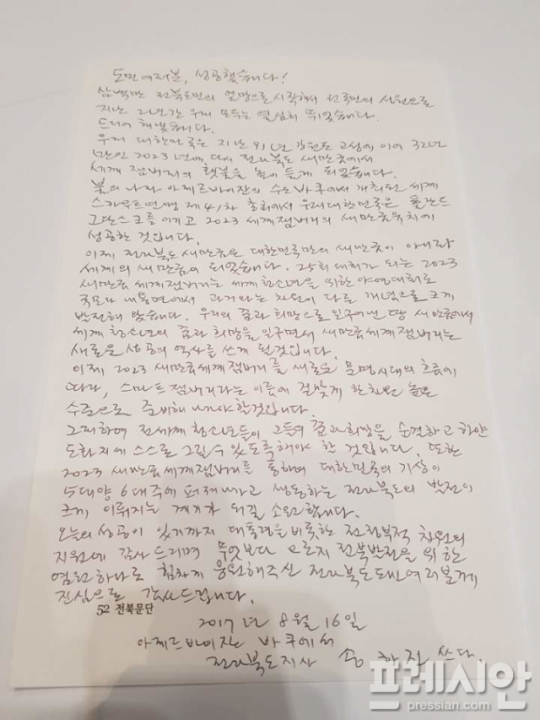 도민여러분, 성공했습니다!
삼백만 전북도민의 열망으로 시작해서 전국민의 성원으로
지난 간 우리 모두는 열심히 뛰었습니다.
드디어 해냈습니다.
우리 대한민국은 지난 91년 강원도 고성에 이어 32년
만인 2023년에 다시 전라북도 새만금에서
세계잼버리의 횃불을 높이 들게 되었습니다.
불의 나라 아제르바이잔의 수도 바쿠에서 개최된 세계
스카우트연맹 제41차 총회에서 우리 대한민국은 폴란드
그단스크를 이기고 2023 세계잼버리의 새만금 유치에
성공한 것입니다.
이제 전라북도 새만금은 대한민국만의 새만금이 아니라
세계의 새만금이 되었습니다. 25회 대회가 되는 2023
새만금 세계잼버리는 세계청소년을 위한 야영대회로
규모나 내용면에서 과거와는 차원이 다른 개념으로 크게
발전해 왔습니다. 우리의 꿈과 희망으로 일구어낸 땅 새만금에서
세계 청소년의 꿈과 희망을 일구면서 새만금세계잼버리는
새로운 성공의 역사를 쓰게 된것입니다.
이제 2023 새만금세계잼버리를 새로운 문명시대의 흐름에
따라, 스마트잼버리라는 이름에 걸맞게 한차원 높은
수준으로 준비해 나가야 할것입니다.
그리하여 전세계 청소년들이 그들의 꿈과 희망을 순결하고 하얀
도화지에 스스로 그릴 수 있도록 해야 할 것입니다. 또한
2023 새만금세계잼버리를 통하여 대한민국의 기상이
5대양 6대주에 퍼져나가고 생동하는 전라북도의 발전이
크게 이뤄지는 계기가 되길 소원합니다.
오늘의 성공이 있기까지 대통령을 비롯한 전정부적 차원의
지원에 감사드리며 무엇보다 오로지 전북발전을 위한
염원 하나로 힘차게 응원해주신 전라북도 도민 여러분께
진심으로 감사드립니다.
52 전북문단
2017년 8월 16일
아제르바이잔 바쿠에서
전라북도지사 송하진 쓰다.
프레시안
pressian.com